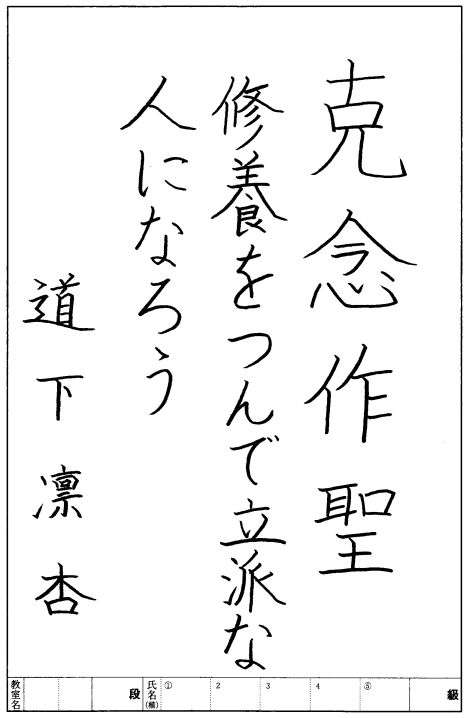 克念作聖
修養をつんで立派な
人になろう
道下凛杏
級
⑤ 4 3 2 ①
氏名(横)
段
教室名